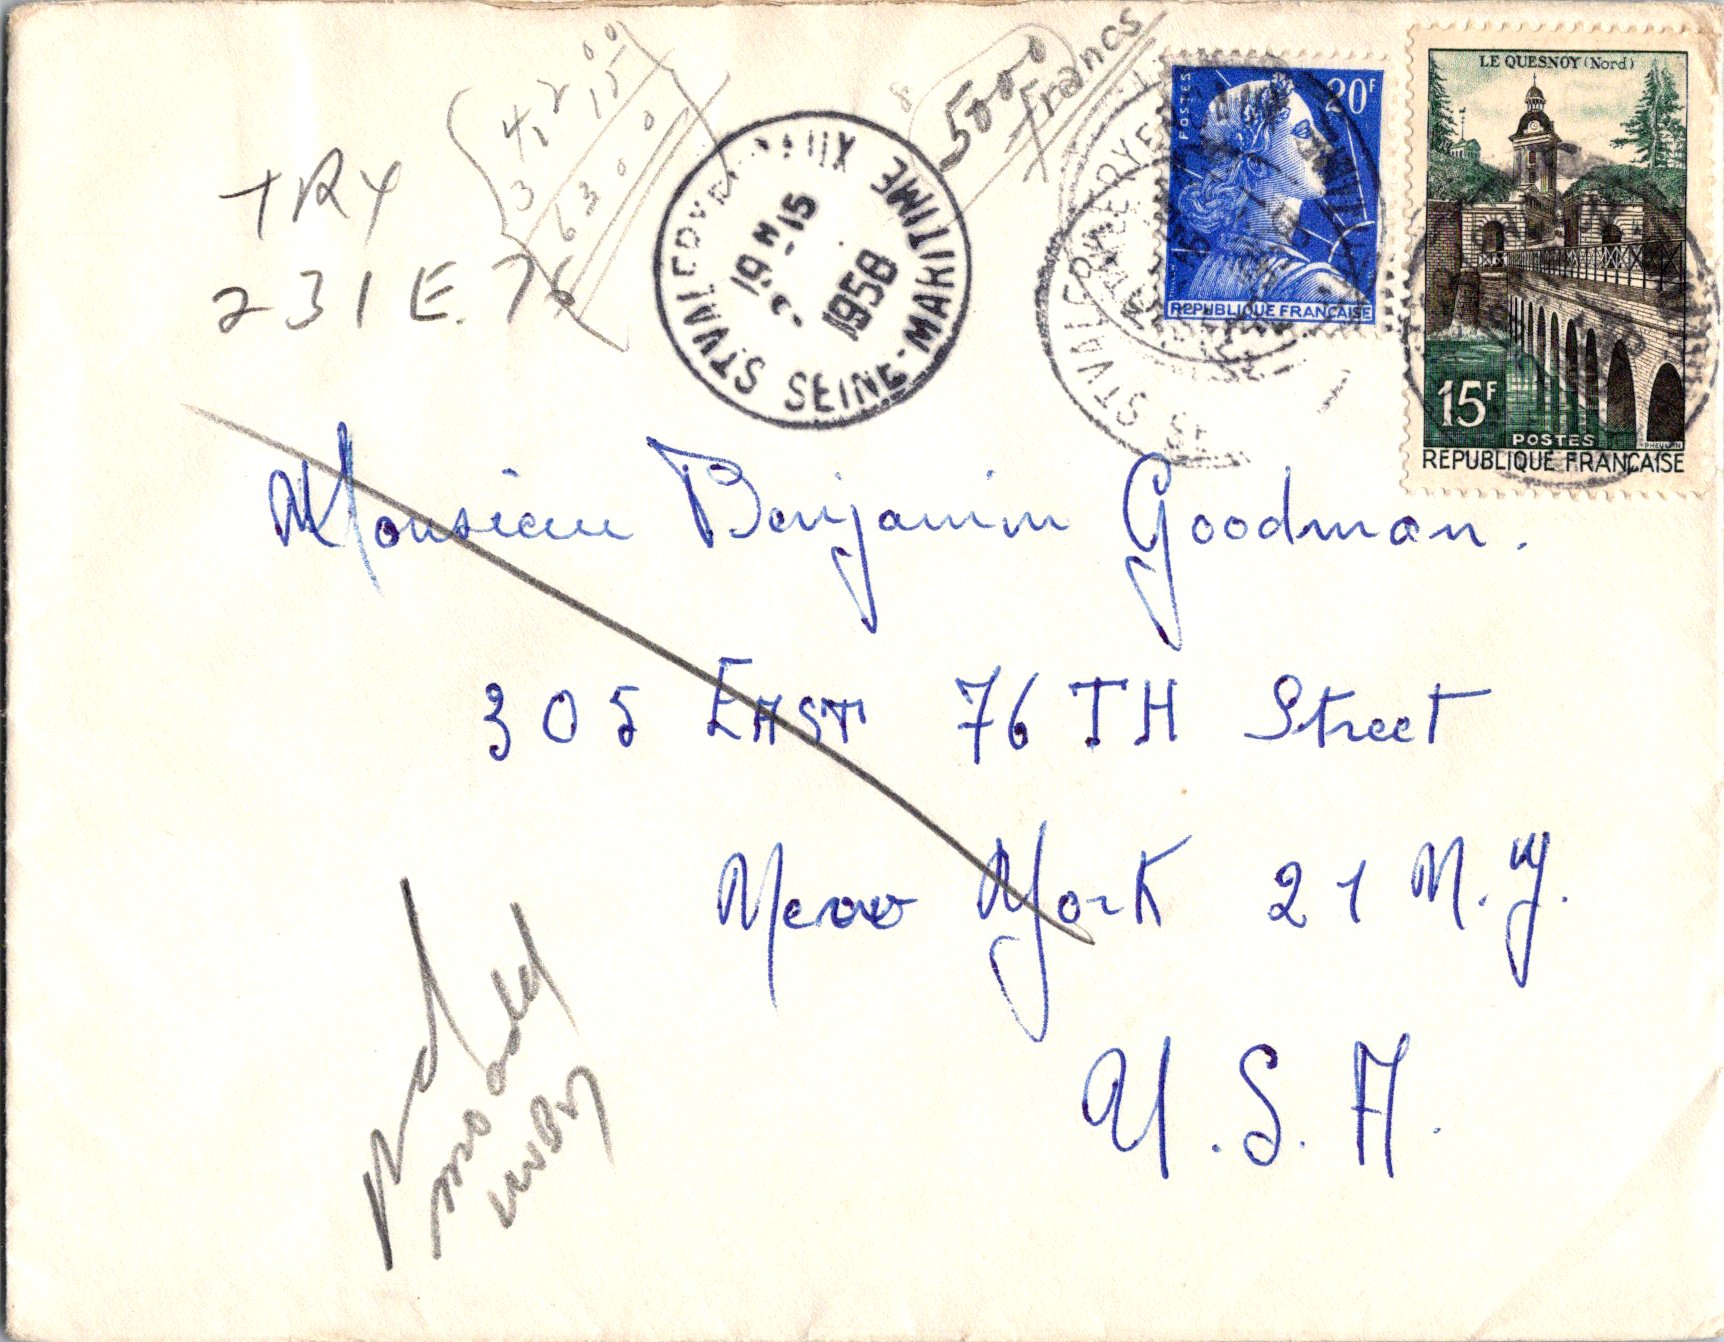 TRY
231 E. 76
4200
1215
6300
5000
Francs
ST VALERY-EN-CAUX
19 H 15
1958
SEINE-MARITIME
POSTES
20F
REPUBLIQUE FRANÇAISE
LE QUESNOY (Nord)
15F
POSTES
REPUBLIQUE FRANÇAISE
Monsieur Benjamin Goodman.
305 EAST 76 TH Street
New York 21 N.Y.
U.S.A.